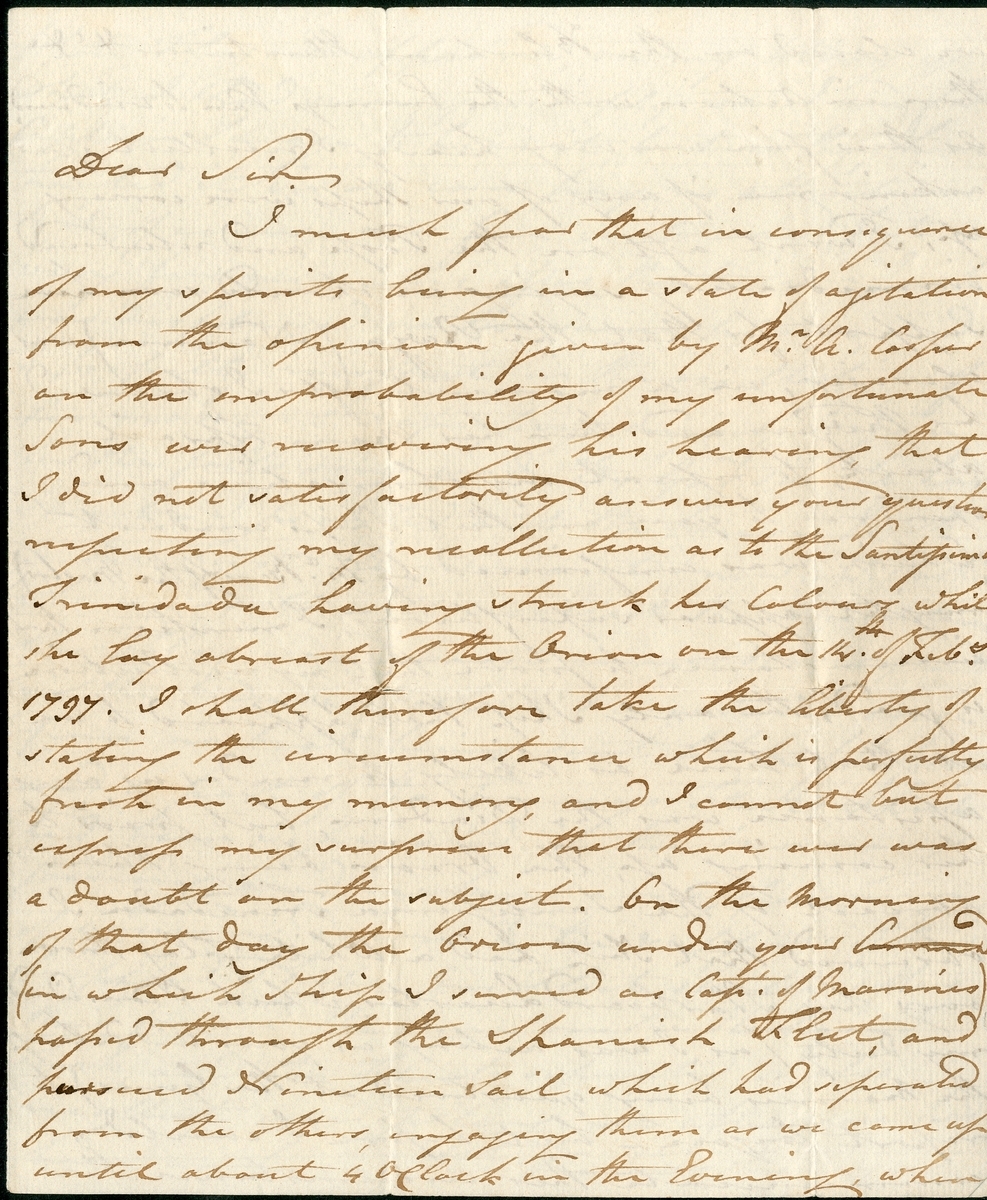 Dear Sir,
I much fear that in consequence
of my spirits being in a state of agitation
from the opinion given by Mr. A. Cooper
on the improbability of my unfortunate
Sons ever recovering his hearing that
I did not satisfactorily answer your question
respecting my recollection as to the Santissima
Trinidada having struck her Colours while
she lay abreast of the Orion on the 14th. of Feby.
1797. I shall therefore take the liberty of
stating the circumstance which is perfectly
fresh in my memory, and I cannot but
express my surprise that there ever was
a doubt on the subject. On the Morning
of that day the Orion under your
(in which Ship I served as Capt. of Marines)
passed through the Spanish Fleet, and
pursued Nineteen Sail which had seperated
from the others, engaging them as we came up
until about 4 OClock in the Evening, when